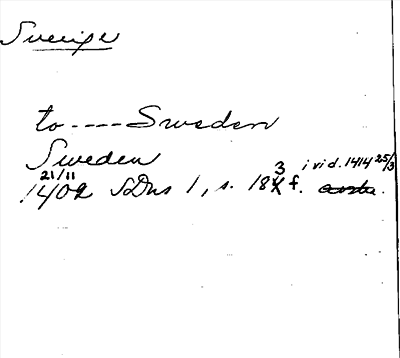 Sverige
to----Sweden
Sweden
21/11 3 i vid. 1414 25/3
1402 SDns 1, s. 18 f.